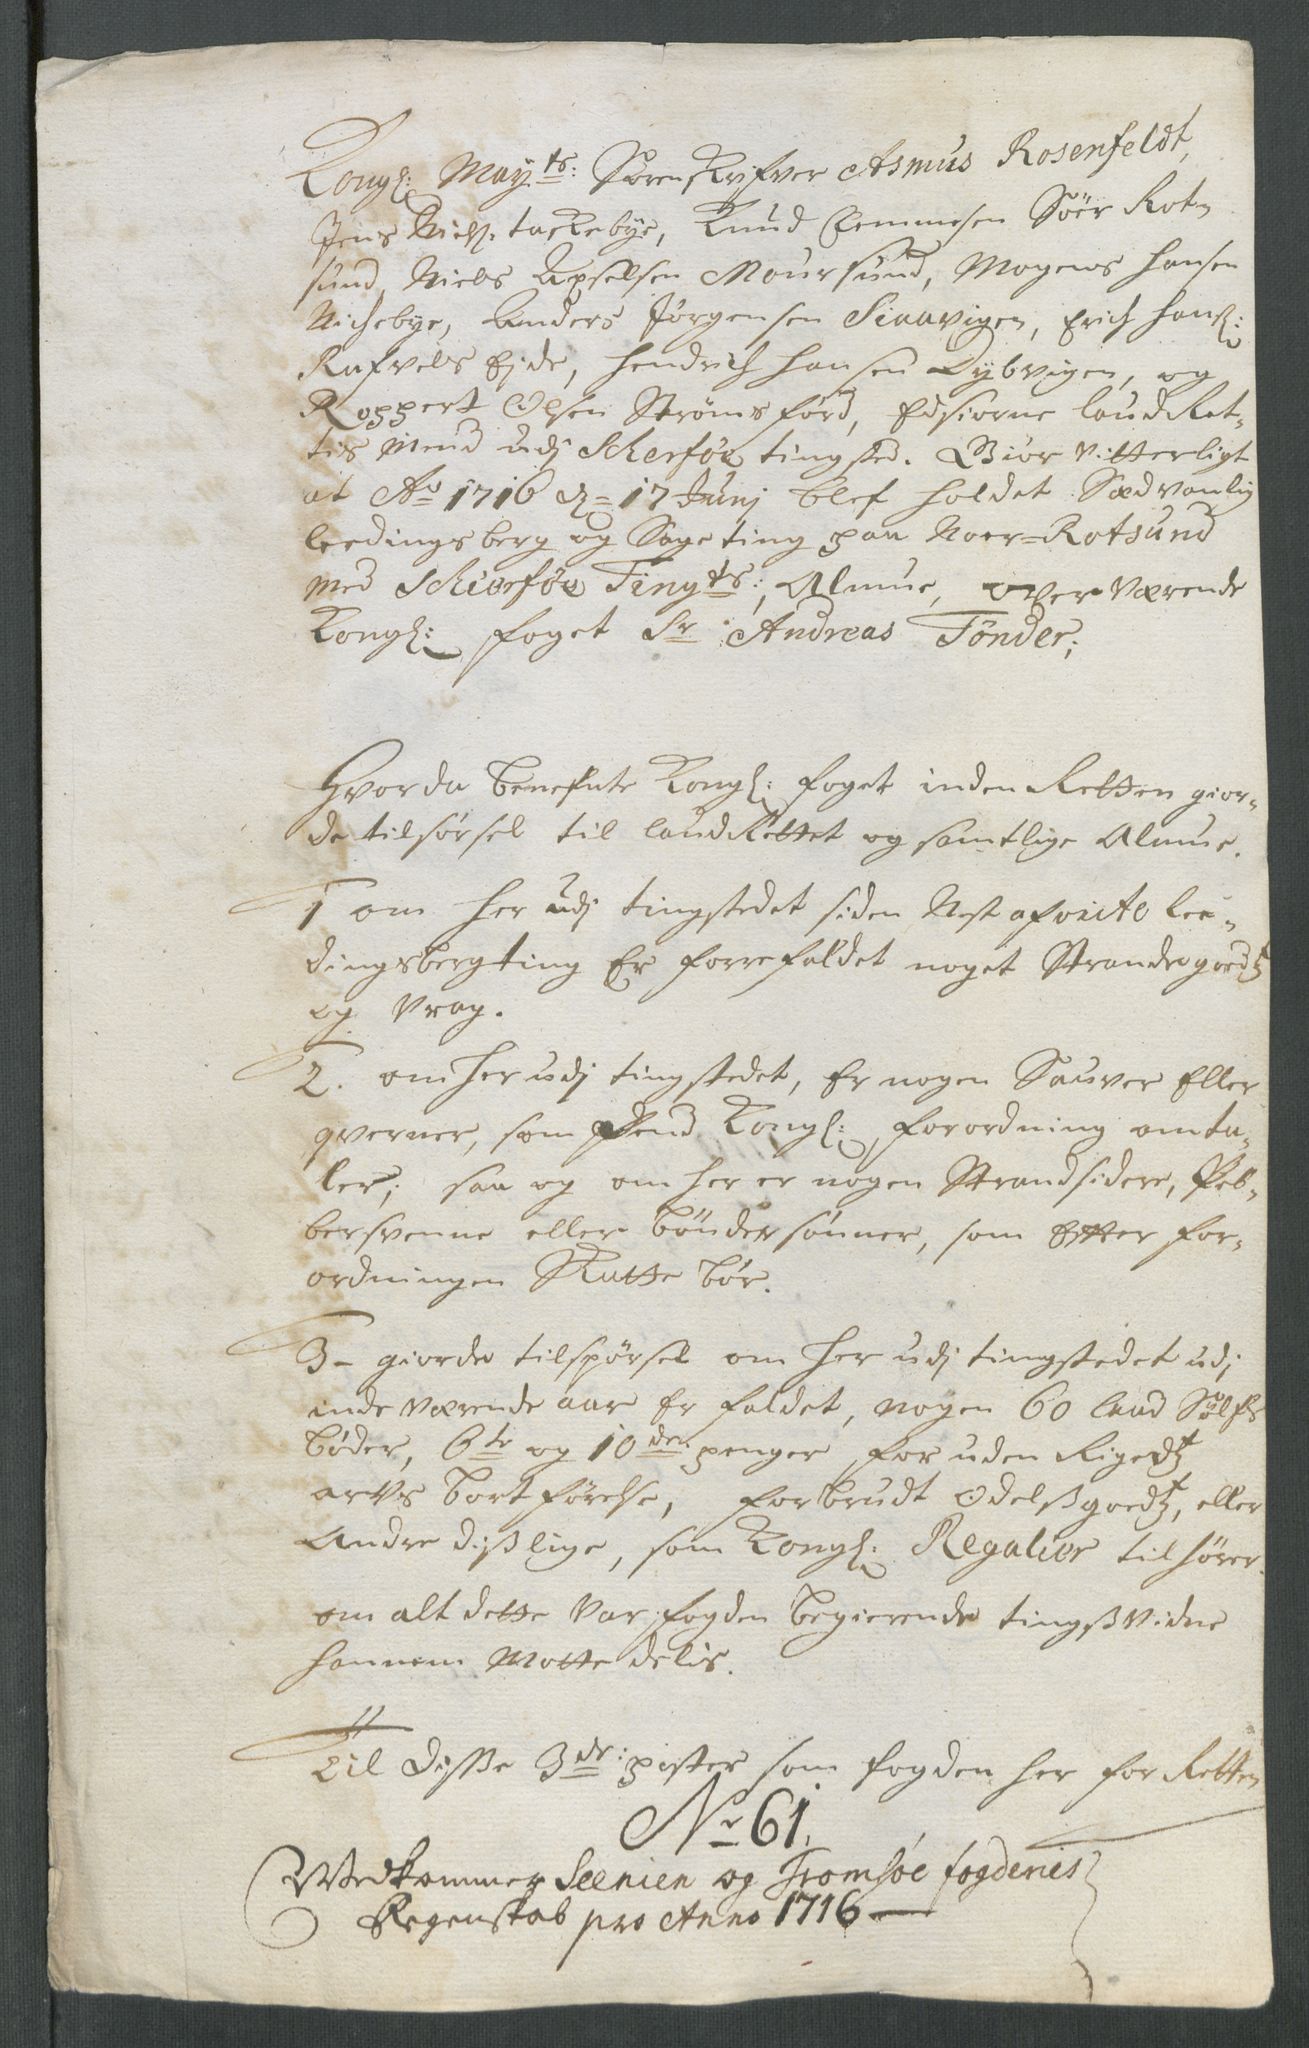 Kongl: May:ts: Sorenskrifver Asmus Rosenfeldt,
Jens Niels: tackebye, Knud Clemmesen Sör Rot-
sund, Niels Axselsen Maursund, Mogens Hansen
Nichebye, Anders Jörgensen Siaavigen, Erich Hans:
Rafvels Ejde, Hendrich Hansen Dybvigen, og
Roppert Olsen Strömsfiord, Edsorne laugRet-
tis Mend udj Scherföe tingsted. Giör Vitterligt
at Ao 1716 d= 17 Junj blef holdet Sædvanlig
leedingsberg og Sage ting paa Noer=Rotsund
med Schierföe Tingts: Almue, overværende
Kongl: foget Sr Andreas Tönder;
Hvor da benefnte Kongl: foget inden Retten gior-
de tilspörsel til laugRettet og samtlige Almue.
1 om her udj tingstedet siden Nest afvigte lee-
dingsbergting Er forrefaldet noget Strandegoedtz
og Vrag.
2. om her udj tingstedet, Er nogen Sauver Eller
qverner, som Kongl: forordning omta-
ler; saa og om her er nogen Strandsidere, Peb-
bersvenne eller bönder sönner, som Efter for-
ordningen Skatte bör.
3- giorde tilspörsel om her udj tingstedet udj
inde værende aar Er faldet, nogen 60 laad Sölfs
böder, 6te og 10de penger, for uden Rigedtz
arfs bort förelse, forbrudt Odelssgoedtz, eller
Andre disslige, som Kongl: Regalier tilhörer.
om alt dette Var fogden begierende tingssvidne
hannem Motte delis.
Til Disse 3de: poster som fogden her for Retten
No 61.
Vedkommer Seenien og Tromsöe fogderies
Regenskab pro Anno 1716